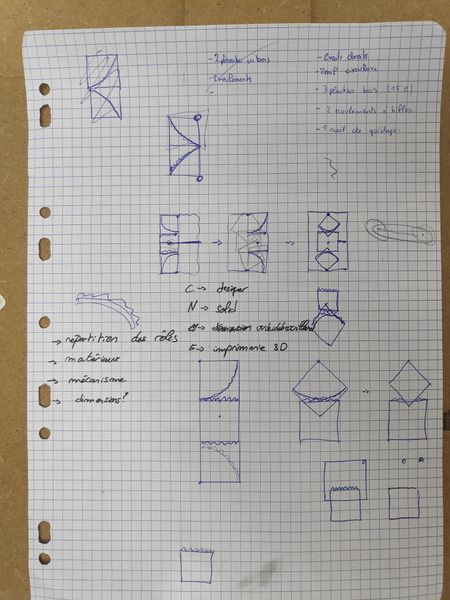 - 2 planches en bois
- 2 roulements
-
- 2 rails droits
- 3 planches bois (15€)
- 2 roulements à billes
- 1 rail de guidage
C → designer
N → solid
E → imprimerie 3D
→ répartition des rôles
→ matériaux
→ mécanisme
→ dimensions?